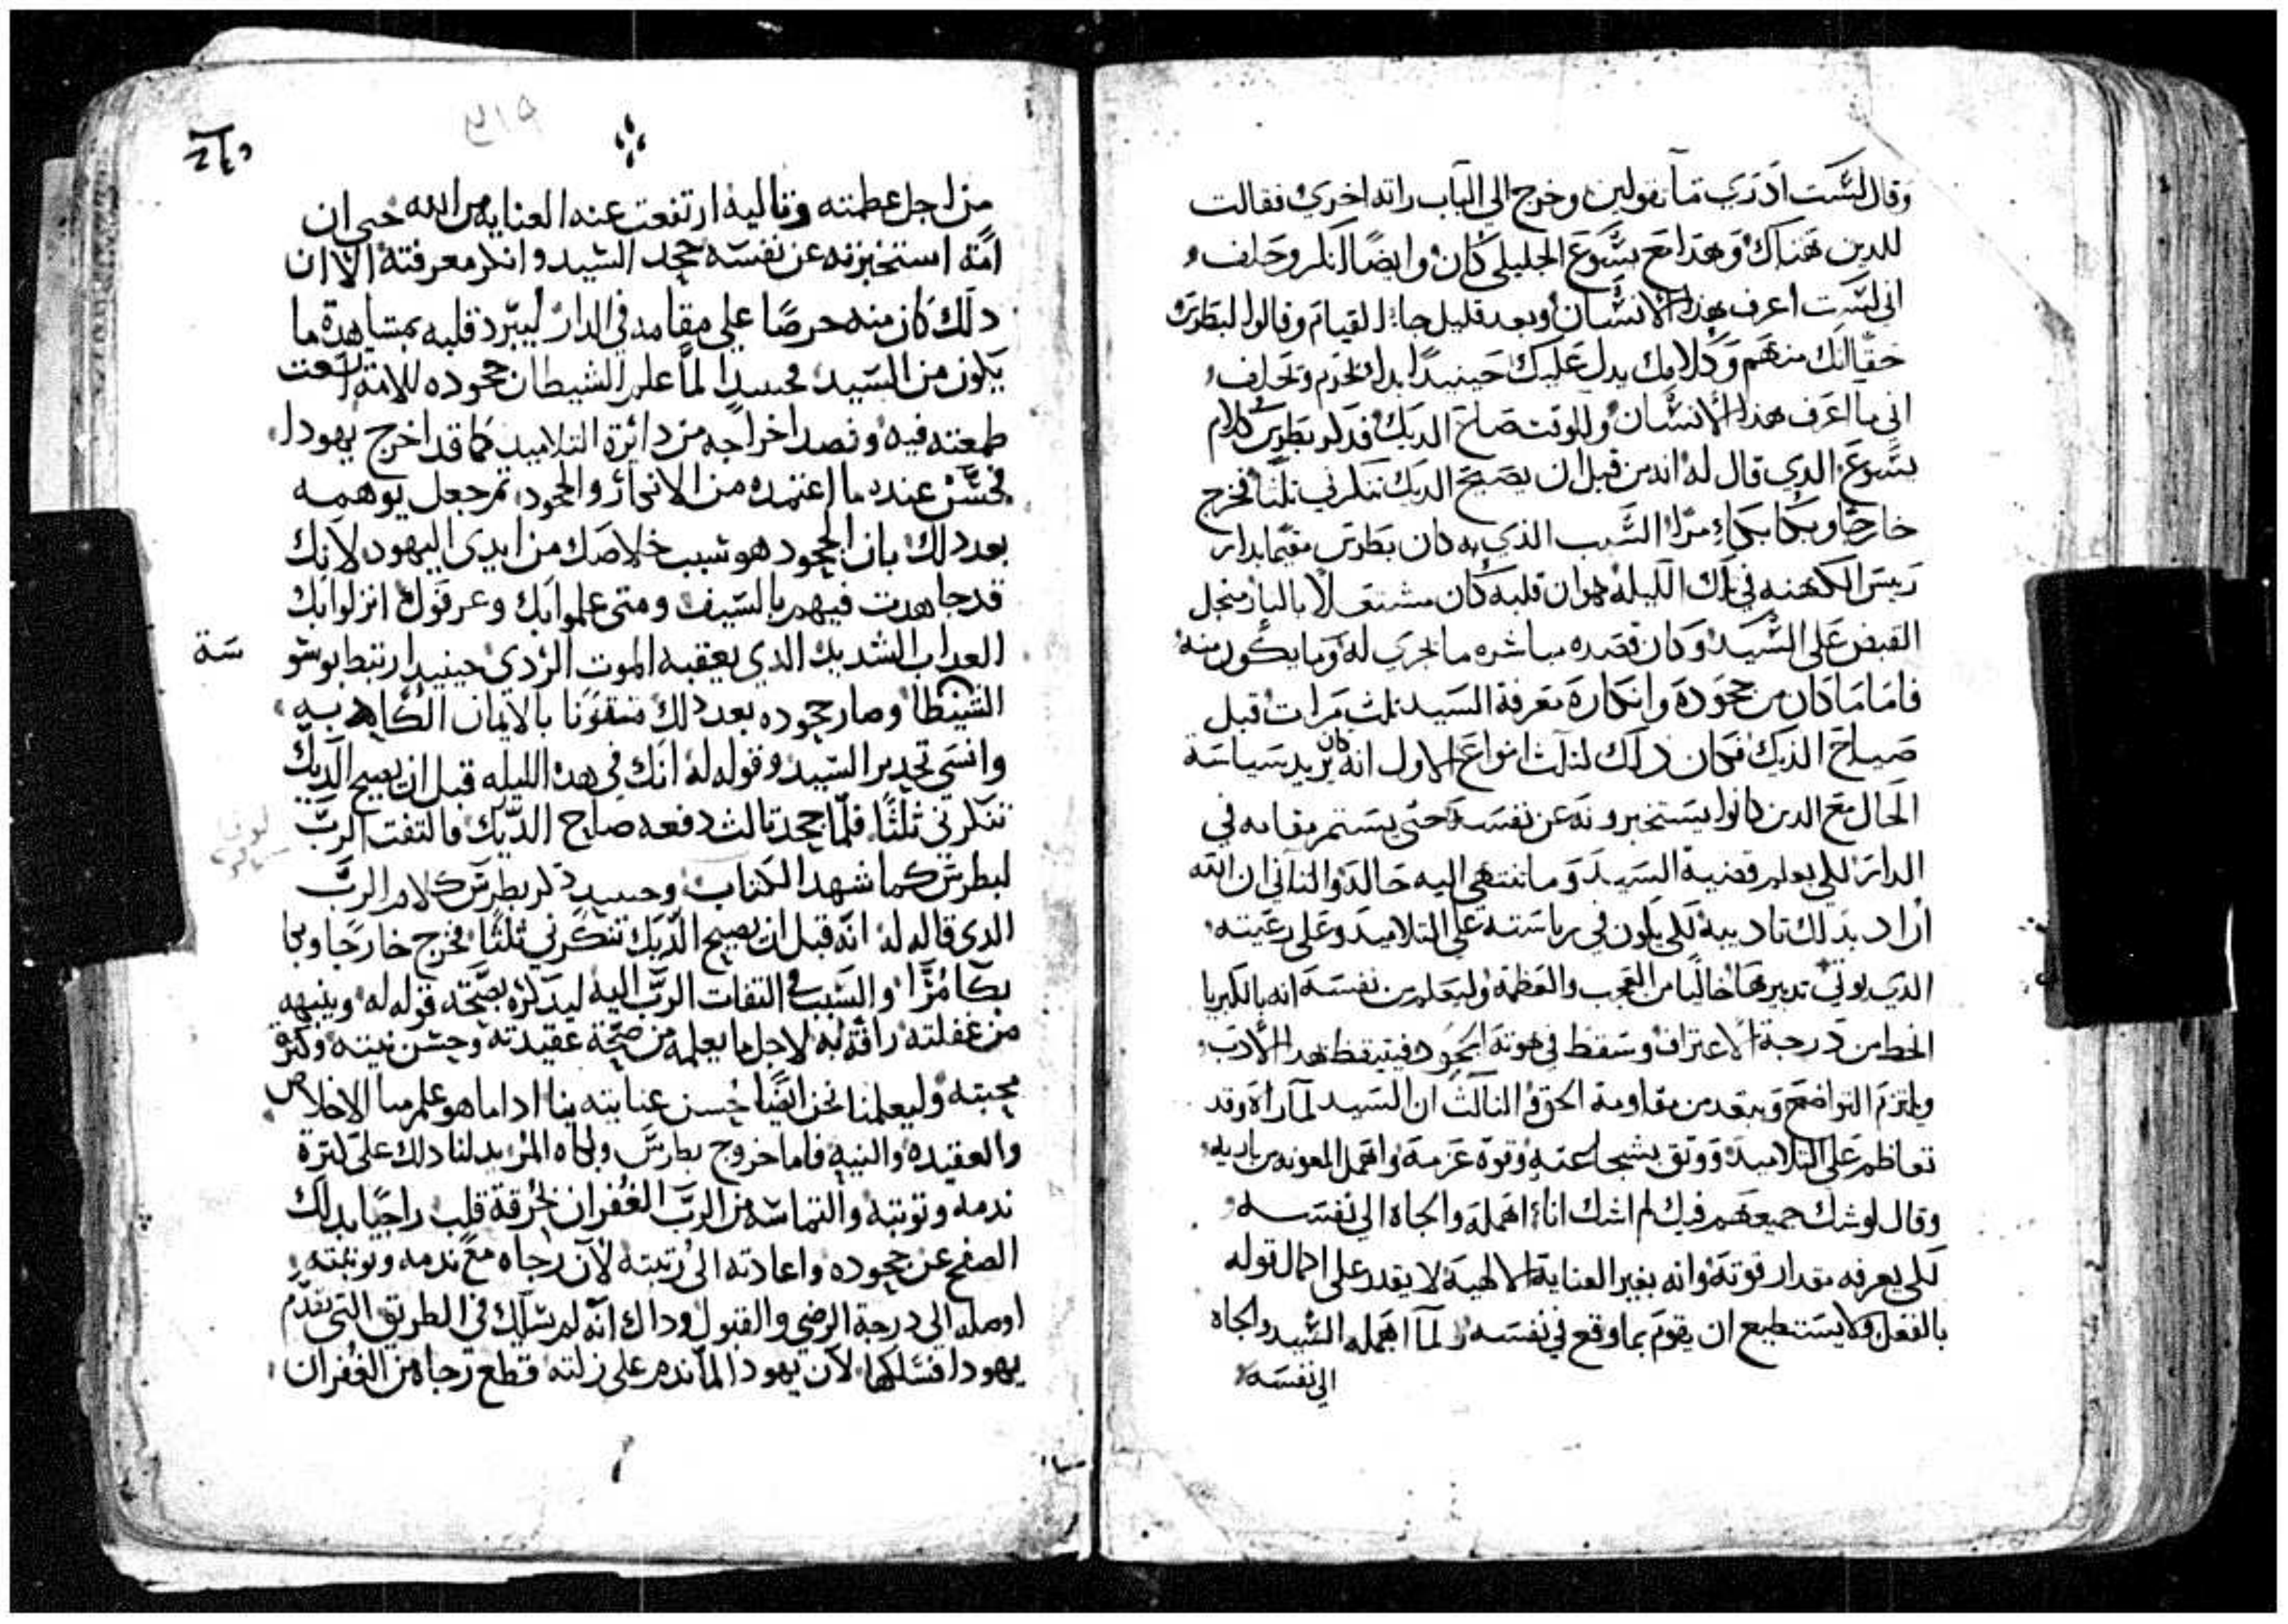 وقال لست ادري ما تقولين وخرج الي الباب راته اخري فقالت
للدين هناك وهدا مع يسوع الجليلي كان وايضا انكر وحلف
اني لست اعرف هذا الانسان وبعد قليل جاء القيام وقالوا لبطرس
حقا انك منهم وكلامك يدل عليك حينيدا بدا يحرم ويحلف
اني ما اعرف هذا الانسان وللوقت صاح الديك فدكر بطرس كلام
يسوع الدي قال له انه من قبل ان يصيح الديك تنكرني ثلثا فخرج
خارجا وبكا بكاء مرا السبب الذي به كان بطرس مقيما بدار
ريس الكهنه في تلك الليله هو ان قلبه كان مشتعلا بالنار من اجل
القبض علي السيد وكان قصده مباشره ما يجري له وما يكون منه
فاما ما كان من جحوده وانكاره معرفة السيد ثلث مرات قبل
صياح الديك فكان دلك لثلث انواع الاول انه كان يريد سياسة
الحال مع الدين كانوا يستخبرونه عن نفسه حتي يستمر مقامه في
الدار لكي يعلم قضية السيد وما تنتهي اليه حاله والثاني ان الله
اراد بدلك تاديبه لكي يكون في رياسته علي التلاميد وعلي رعيته
الدي يولي تدبيرها خاليا من العجب والعظمه وليعلم من نفسه انه بالكبريا
انحط من درجة الاعتراف وسقط في هوته الجحود فيتيقظ بهدا الادب
ويلتزم التواضع ويبتعد من مقاومة الحق والثالث ان السيد لما راه وقد
تعاظم علي التلاميد ووثق بشجاعته وقوة عزمه واهمل المعونه من باريه
وقال لو شك جميعهم فيك لم اشك انا اهمله والجاه الي نفسه
لكي يعرفه مقدار قوته وانه بغير العناية الالهية لا يقدر علي اكمال قوله
بالفعل ولا يستطيع ان يقوم بما وقع في نفسه ولما اهمله السيد والجاه
الي نفسه
من اجل عظمته وتاليه ارتفعت عنه العنايه من الله حتي ان
امة استخبرته عن نفسه جحد السيد وانكر معرفته الا ان
دلك كان منه حرصا علي مقامه في الدار ليبرد قلبه بمشاهدة ما
يكون من السيد فحينيدا لما علم الشيطان جحوده للامة اتسعت
طمعته فيه وقصد اخراجه من دائرة التلاميد كما قد اخرج يهودا
فحسن عنده ما اعتمده من الانكار والجحود ثم جعل يوهمه
بعد دلك بان الجحود هو سبب خلاصك من ايدي اليهود لانك
قد جاهدت فيهم بالسيف ومتي علموا بك وعرفوك انزلوا بك
العداب الشديد الدي يعقبه الموت الردي حينيدا ارتبط بوسو
سة
الشيطان وصار جحوده بعد دلك مقرونا بالايمان الكادبه
وانسي تحدير السيد وقوله له انك في هده الليله قبل ان يصيح الديك
تنكرني ثلثا فلما جحد ثالث دفعه صاح الديك فالتفت الرب
لبطرس كما شهد الكتاب وحينيد دكر بطرس كلام الرب
الدي قاله له انه قبل ان يصيح الديك تنكرني ثلثا فخرج خارجا وبكا
بكا مرا والسبب في التفات الرب اليه ليدكره بصحة قوله له وينبهه
من غفلته رافة به لاجل ما يعلمه من صحة عقيدته وحسن نيته وكثرة
محبته وليعلمنا نحن ايضا حسن عنايته بنا ادا ما هو علم منا الاخلاص
والعقيده والنيه فاما خروج بطرس وبكاه المر يدلنا دلك علي كثرة
ندمه وتوبته والتماسه من الرب الغفران بحرقة قلب راجيا بدلك
الصفح عن جحوده واعادته الي رتبته لان رجاه مع ندمه وتوبته
اوصله الي درجة الرضي والقبول وداك انه لم يسلك في الطريق التي تقدم
يهودا فسلكها لان يهودا لما ندم علي زلته قطع رجاه من الغفران